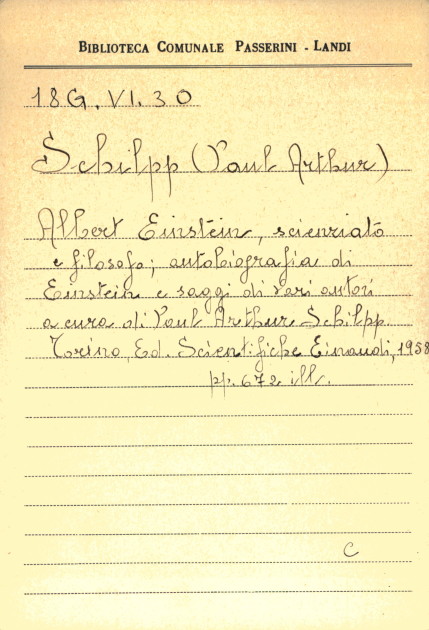 BIBLIOTECA COMUNALE PASSERINI - LANDI
18G.VI.30
Schilpp (Paul Arthur)
Albert Einstein, scienziato
e filosofo; autobiografia di
Einstein e saggi di vari autori
a cura di Paul Arthur Schilpp
Torino, Ed. Scientifiche Einaudi, 1958
pp. 672 ill.
C